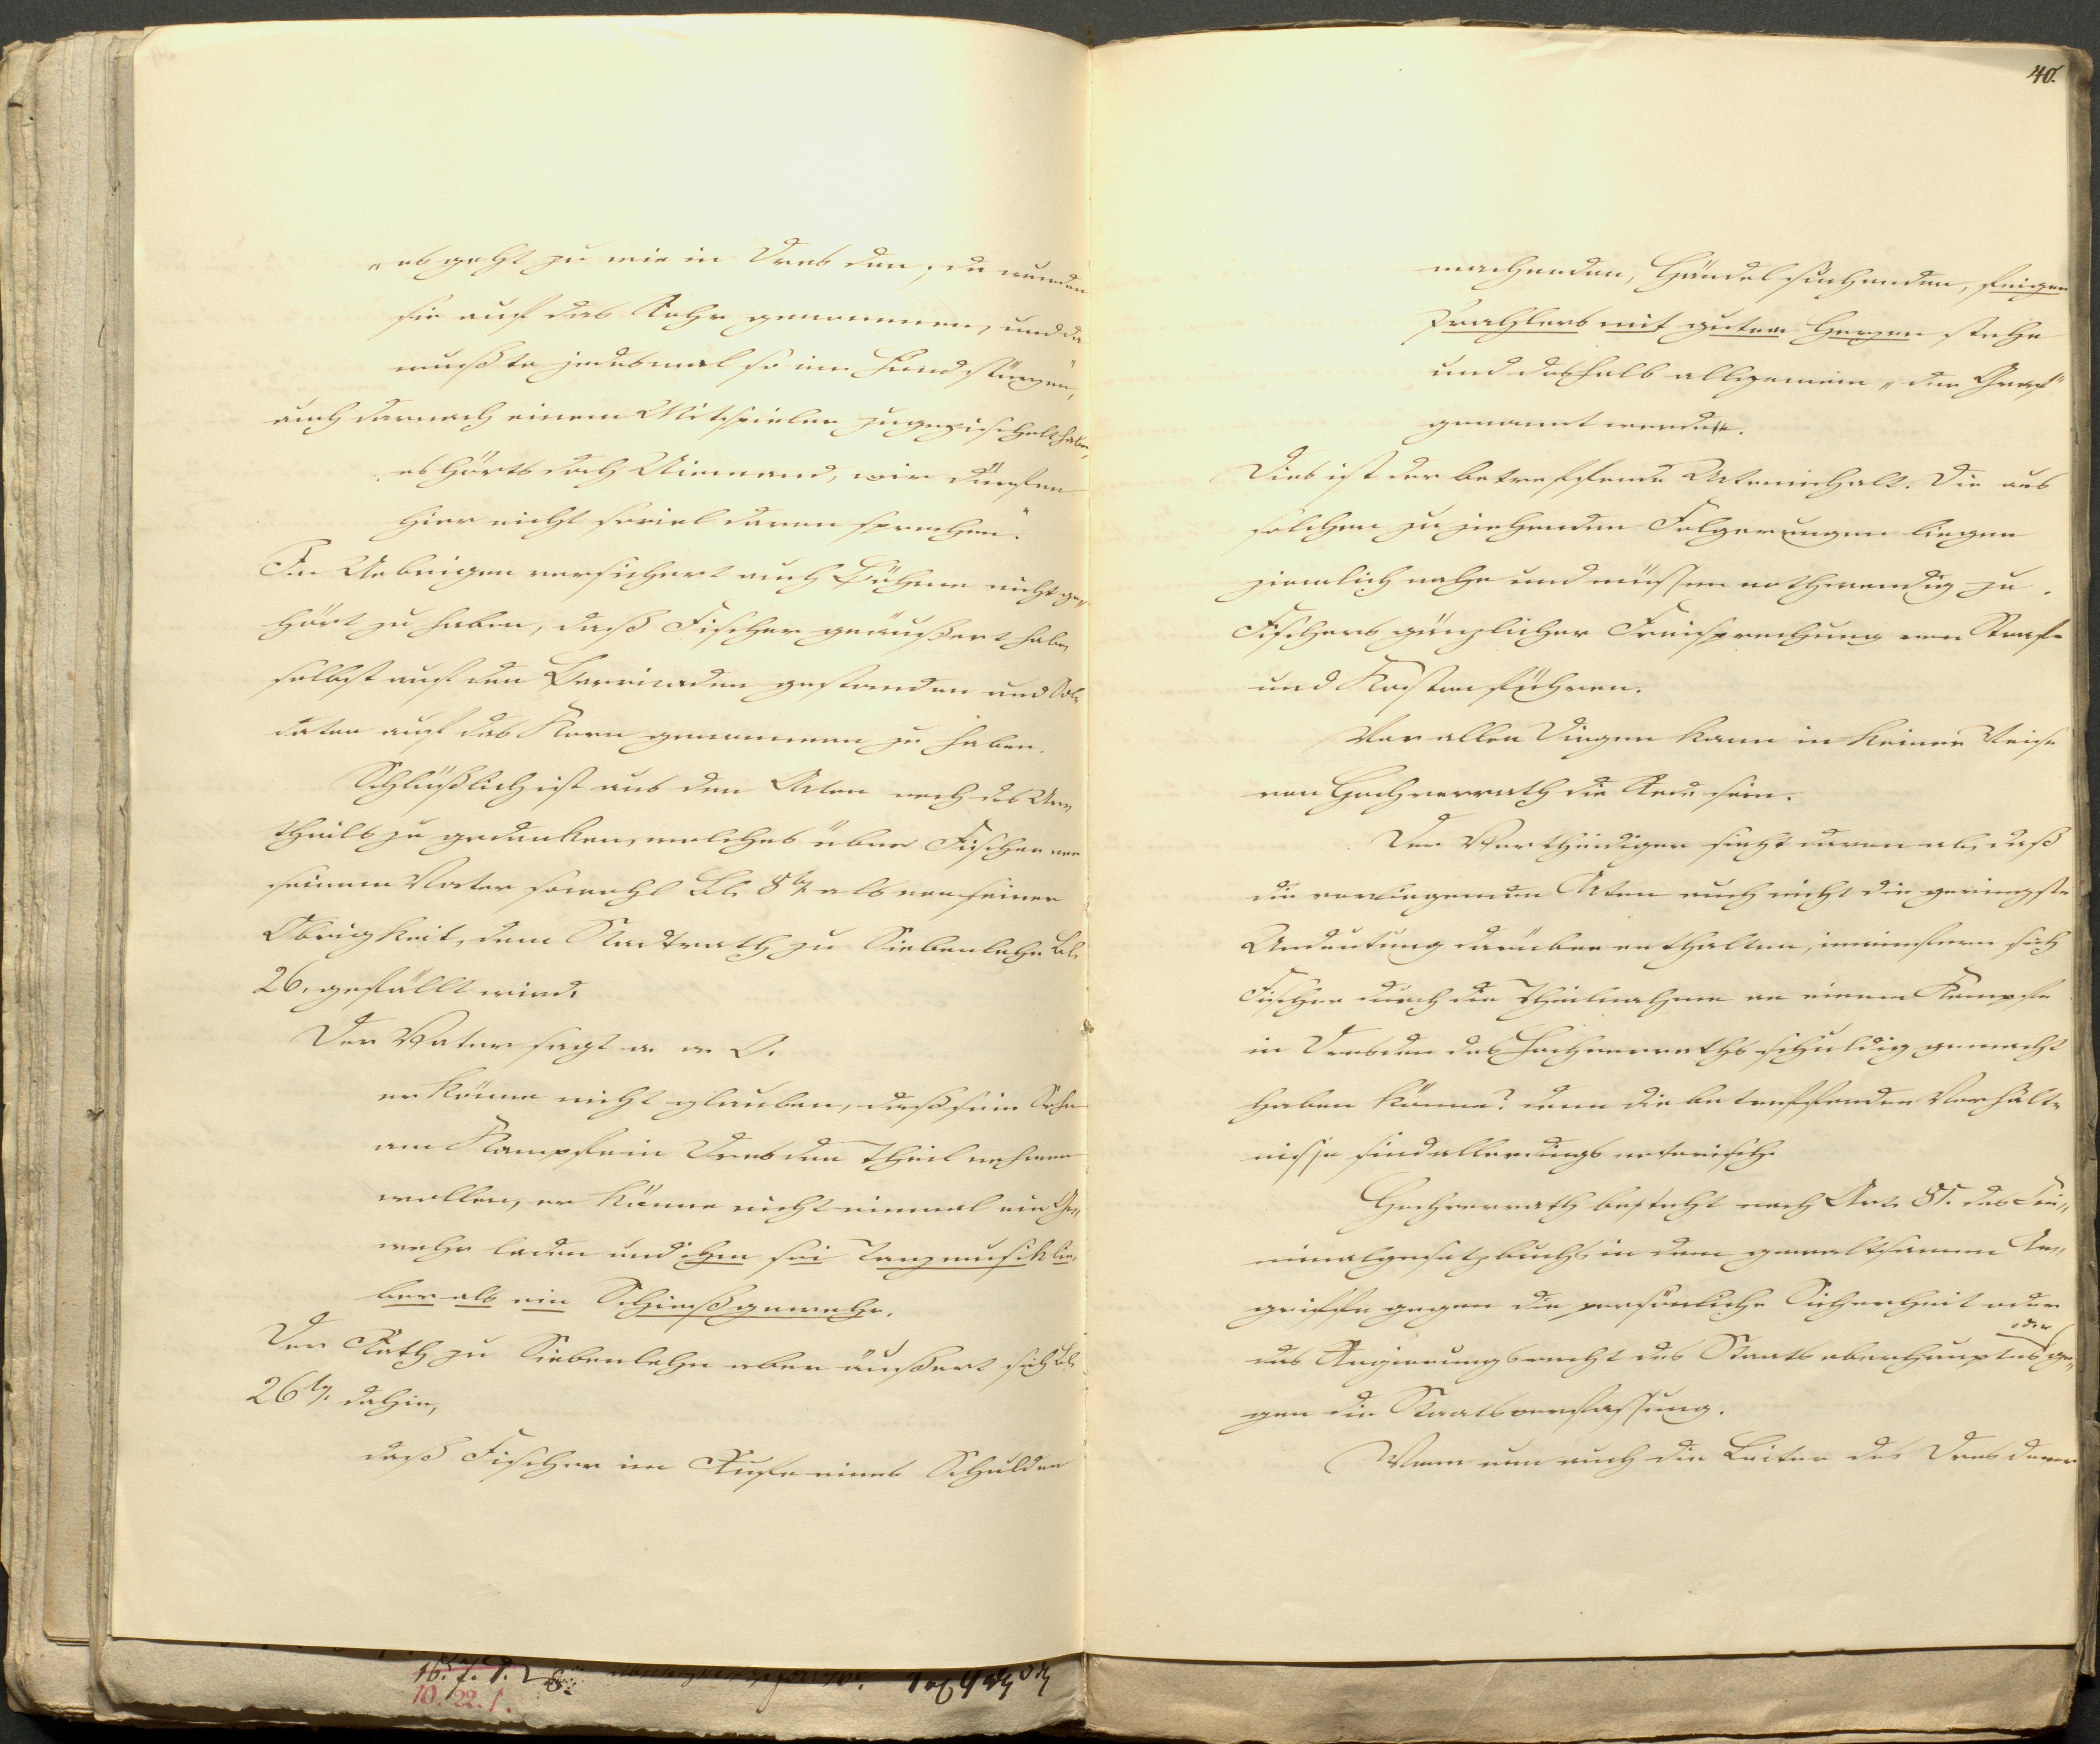 „es geht zu wie in Dresden, da wurden
sie auf das Rohr genommen, und da
mußte jedesmal so ein Hund stürzen,“
auch darnach einem Mitspieler zugezischelt habe,
„es hörts doch Niemand, wir dürfen
hier nicht soviel davon sprechen.“
Im Uebrigen versichert auch Böhme nicht ge„
hört zu haben, daß Fischer geäußert habe,
selbst auf den Barricaden gestanden und Sol„
daten auf das Korn genommen zu haben.
Schlüßlich ist aus den Akten noch des Ur„
theils zu gedenken, welches über Fischer von
seinem Vater sowohl Bl. 8b als von seiner
Obrigkeit, dem Stadtrath zu Siebenlehn Bl.
26. gefällt wird.
Der Vater sagt a. a. O.
er könne nicht glauben, daß sein Sohn
am Kampfe in Dresden Theil nehmen
wollen, er könne nicht einmal ein Ge„
wehr laden und ihm sei Tanzmusik lie„
ber als ein Schießgewehr.
Der Rath zu Siebenlehn aber äußert sich Bl.
26b. dahin,
daß Fischer im Rufe eines Schulden
40.
machenden, Händel suchenden, feigen
Prahlers mit gutem Herzen stehe
und deshalb allgemein „der Graf“
genannt werde.
Dies ist der betreffende Akteninhalt. Die aus
solchem zu ziehenden Folgerungen liegen
ziemlich nahe und müssen nothwendig zu
Fischers gänzlicher Freisprechung von Strafe
und Kosten führen.
Vor allen Dingen kann in keiner Weise
von Hochverrath die Rede sein.
Der Vertheidiger sieht davon ab, daß
die vorliegenden Akten auch nicht die geringste
Andeutung darüber enthalten, inwiefern sich
Fischer durch die Theilnahme an einem Kampfe
in Dresden des Hochverraths schuldig gemacht
haben könne? denn die betreffenden Verhält„
nisse sind allerdings notorisch.
Hochverrath besteht nach Art. 81. des Cri„
minalgesetzbuchs in dem gewaltsamen An„
griffe gegen die persönliche Sicherheit oder
das Regierungsrecht des Staatsoberhauptes oder ge„
gen die Staatsverfassung.
Wenn nun auch die Leiter des Dresdner
16. 7.
10. 22. 1.